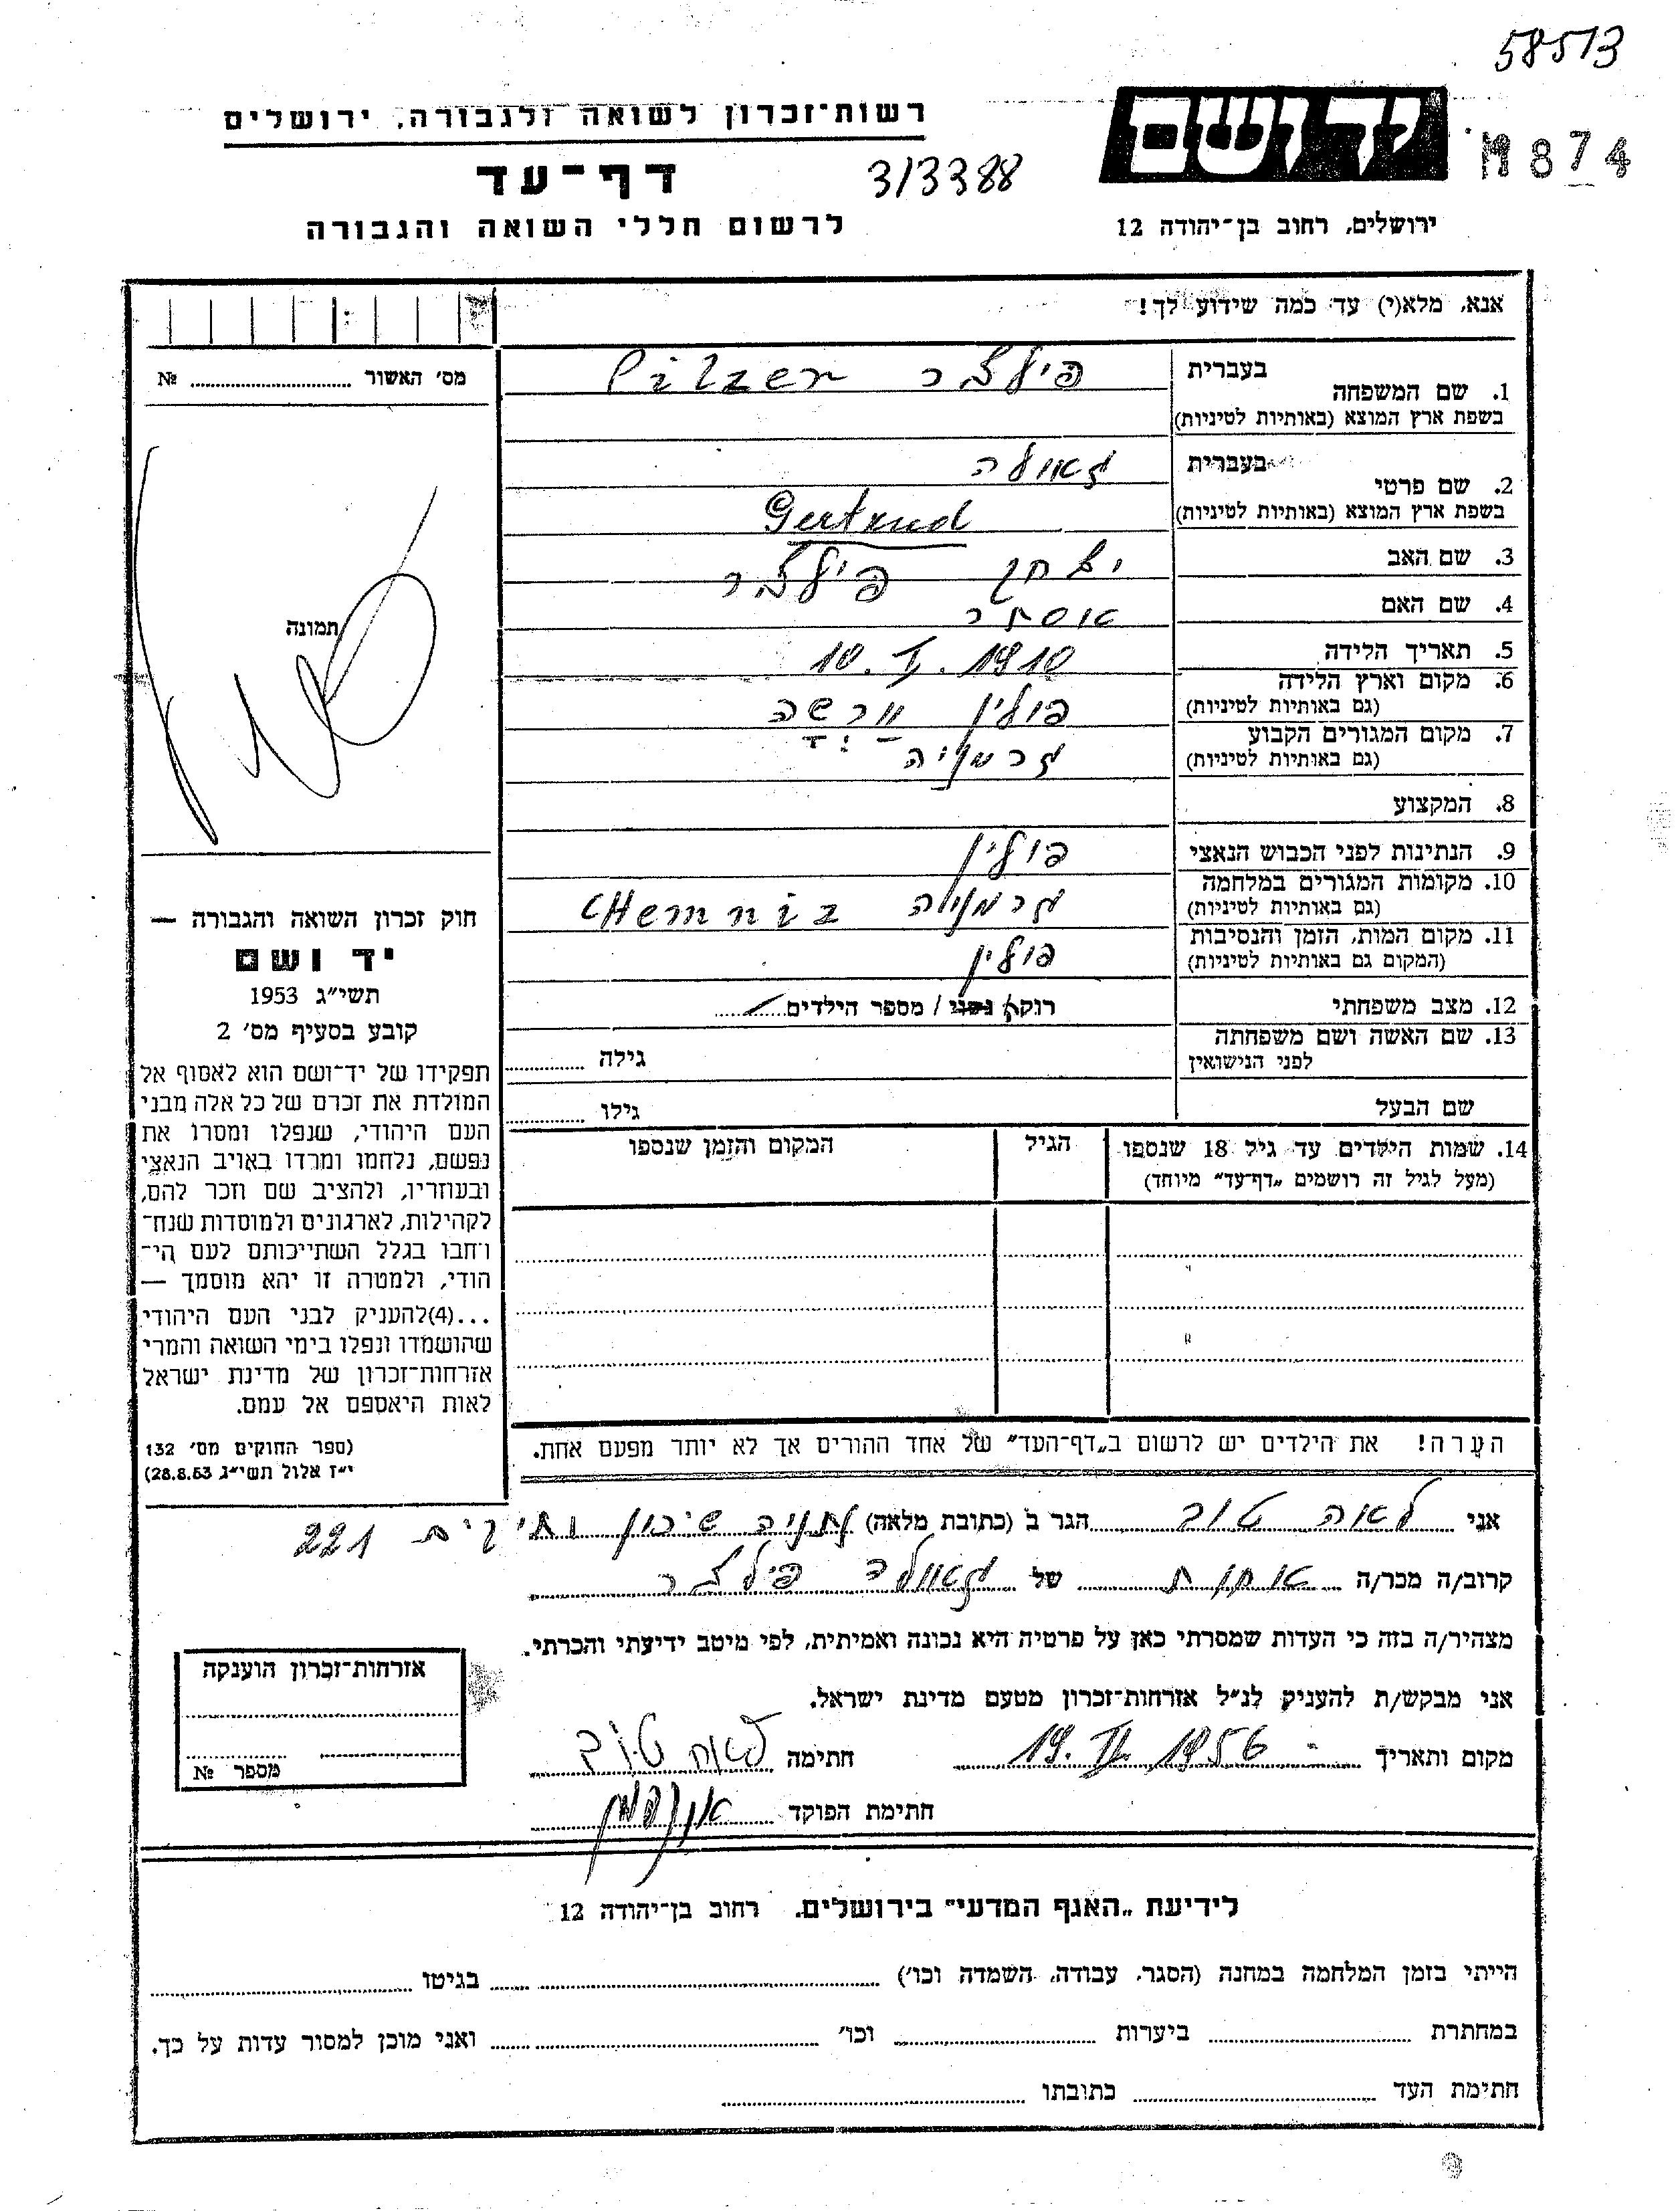 58513
רשות־זכרון לשואה ולגבורה, ירושלים
יד ושם
M874
דף־עד
313388
לרשום חללי השואה והגבורה
ירושלים, רחוב בן־יהודה 12
אנא, מלא(י) עד כמה שידוע לך!
מס' האשור № 
תמונה
1. שם המשפחה בעברית פילצר Pilzer
בשפת ארץ המוצא (באותיות לטיניות)
2. שם פרטי בעברית גאולה
בשפת ארץ המוצא (באותיות לטיניות) Gertrud
3. שם האב יצחק פילצר
4. שם האם אסתר
5. תאריך הלידה 10. I. 1910
6. מקום וארץ הלידה פולין ורשה
(גם באותיות לטיניות)
7. מקום המגורים הקבוע גרמניה
(גם באותיות לטיניות)
8. המקצוע
9. הנתינות לפני הכבוש הנאצי פולין
10. מקומות המגורים במלחמה גרמניה CHemniz
(גם באותיות לטיניות)
11. מקום המות, הזמן והנסיבות פולין
(המקום גם באותיות לטיניות)
12. מצב משפחתי רוקא נשוי / מספר הילדים
13. שם האשה ושם משפחתה גילה
לפני הנישואין
שם הבעל גילו
14. שמות הילדים עד גיל 18 שנספו הגיל המקום והזמן שנספו
(מעל לגיל זה רושמים „דף־עד" מיוחד)
הערה! את הילדים יש לרשום ב„דף־העד" של אחד ההורים אך לא יותר מפעם אחת.
חוק זכרון השואה והגבורה —
יד ושם
תשי"ג 1953
קובע בסעיף מס' 2
תפקידו של יד־ושם הוא לאסוף אל
המולדת את זכרם של כל אלה מבני
העם היהודי, שנפלו ומסרו את
נפשם, נלחמו ומרדו באויב הנאצי
ובעוזריו, ולהציב שם וזכר להם,
לקהילות, לארגונים ולמוסדות שנח־
רבו בגלל השתייכותם לעם הי־
הודי, ולמטרה זו יהא מוסמך —
...(4)להעניק לבני העם היהודי
שהושמדו ונפלו בימי השואה והמרי
אזרחות־זכרון של מדינת ישראל
לאות היאספם אל עמם.
(ספר החוקים מס' 132
י"ז אלול תשי"ג 28.8.53)
אני לאה טוב הגר ב (כתובת מלאה) נתניה שיכון ותיקים 221
קרוב/ה מכר/ה אחות של גאולה פילצר
מצהיר/ה בזה כי העדות שמסרתי כאן על פרטיה היא נכונה ואמיתית, לפי מיטב ידיעתי והכרתי.
אני מבקש/ת להעניק לנ"ל אזרחות־זכרון מטעם מדינת ישראל.
מקום ותאריך 19. II. 1956 חתימה לאה טוב
חתימת הפוקד
אזרחות־זכרון הוענקה
מספר №
לידיעת „האגף המדעי" בירושלים. רחוב בן־יהודה 12
הייתי בזמן המלחמה במחנה (הסגר, עבודה, השמדה וכו') בגיטו
במחתרת ביערות וכו' ואני מוכן למסור עדות על כך.
חתימת העד כתובתו